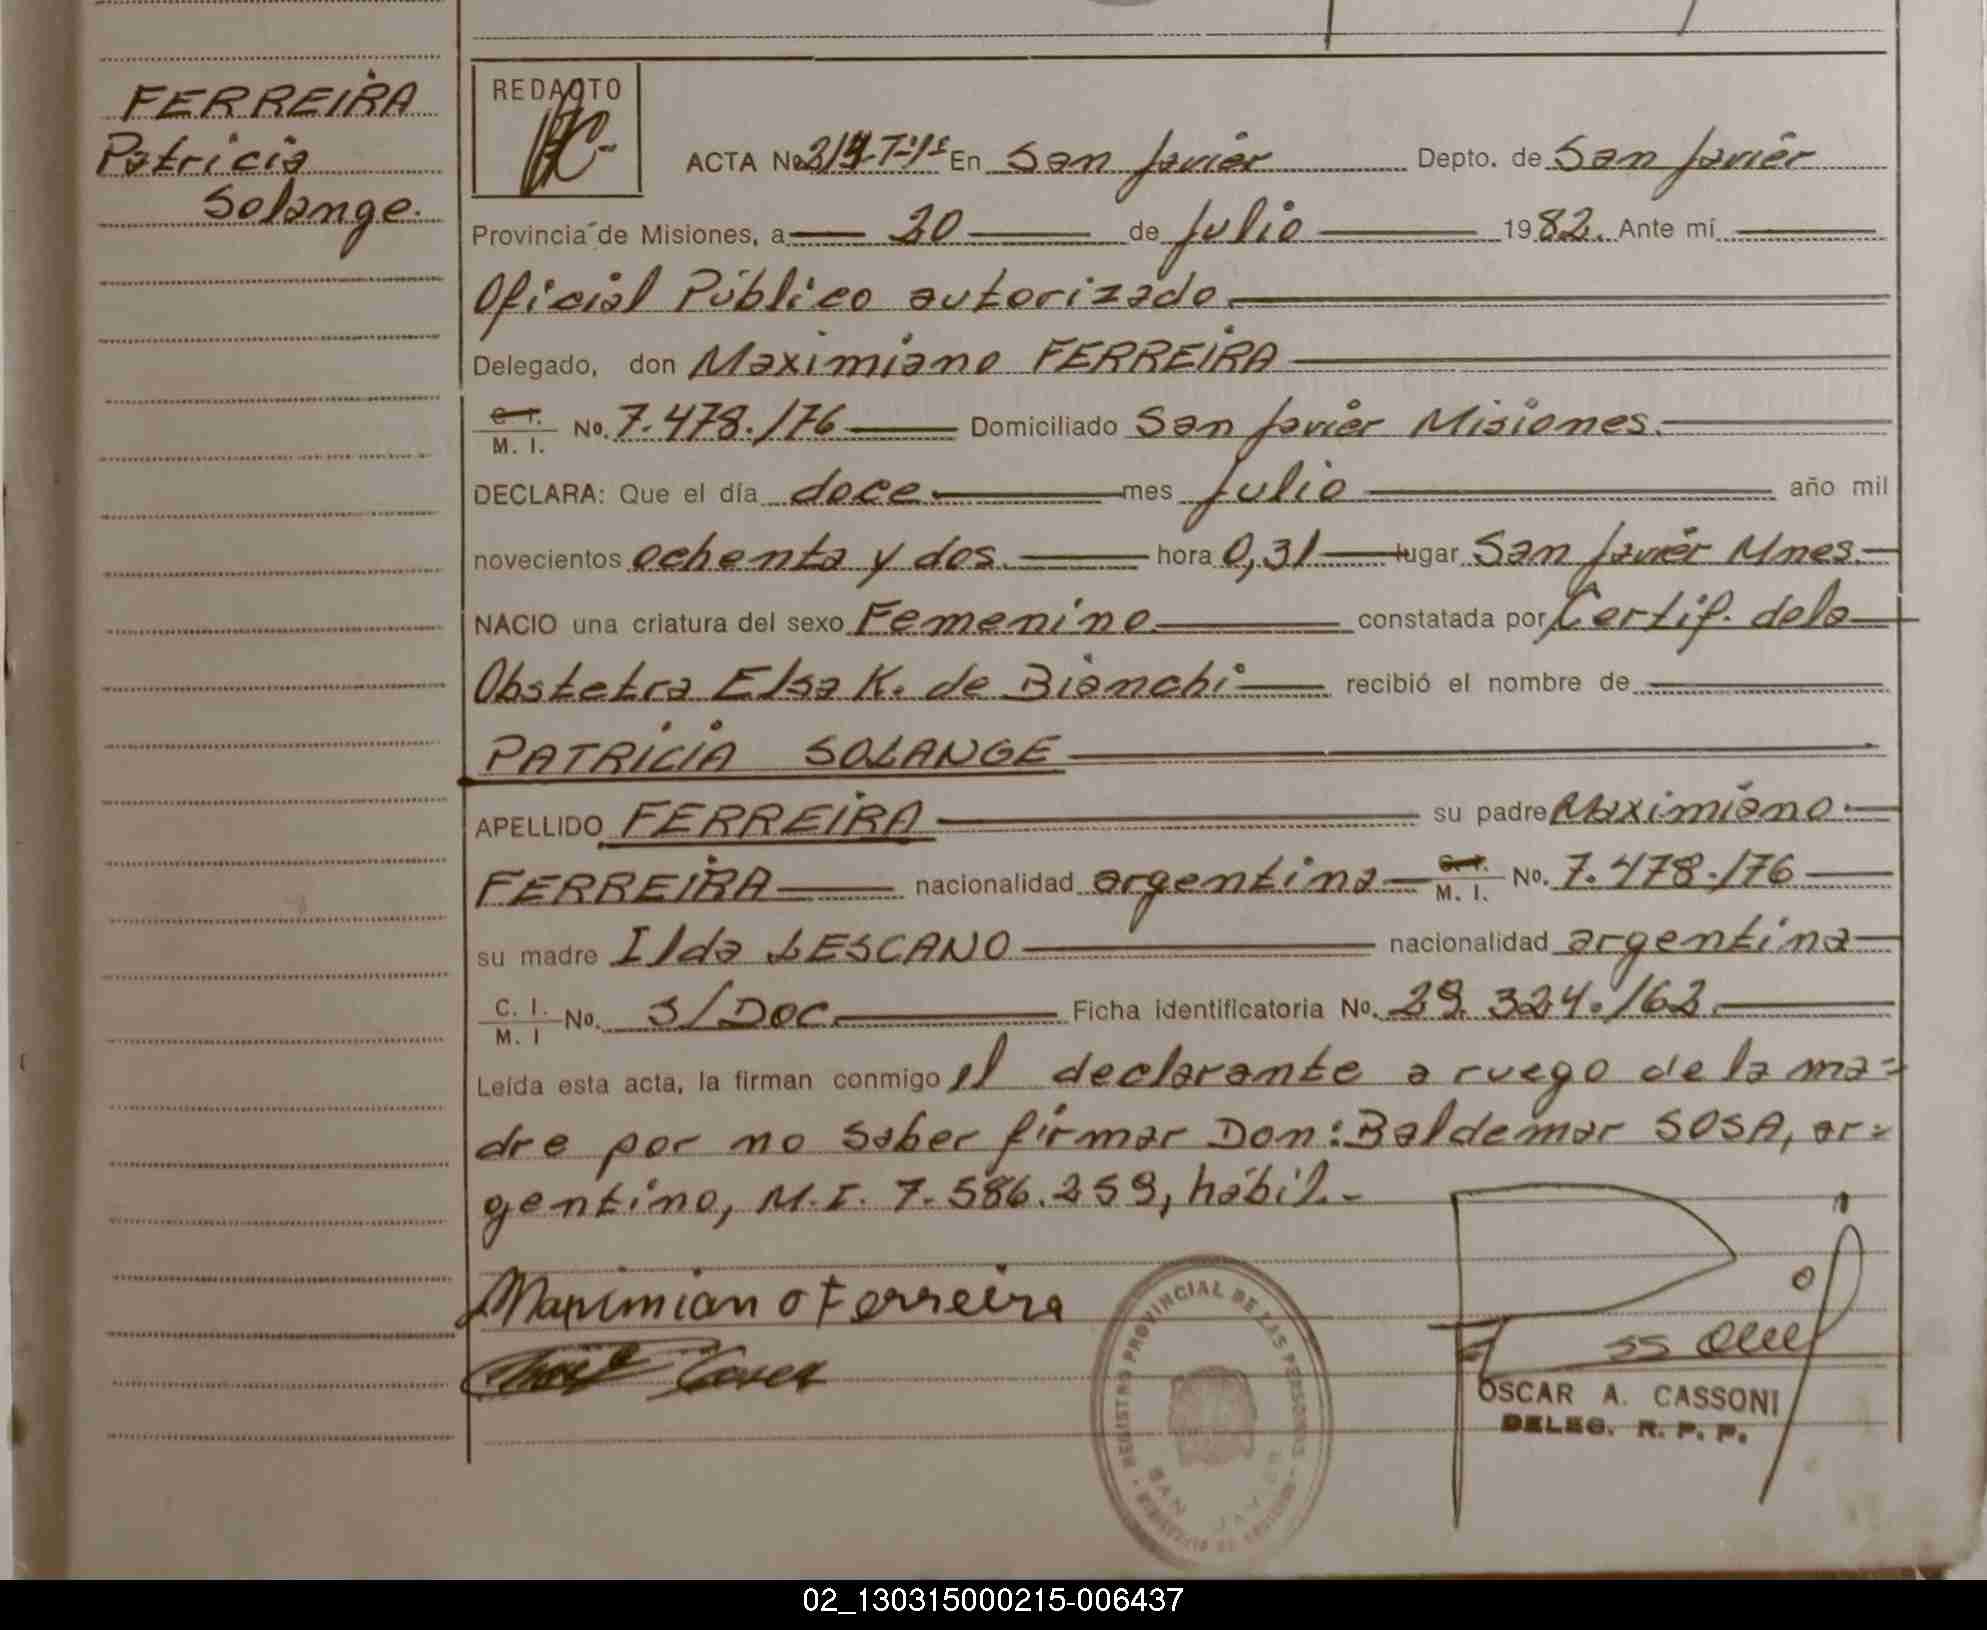 FERREIRA
Patricia
Solange.
REDACTO
ACTA No 214-T-1s En San Javier Depto. de San Javier
Provincia de Misiones, a 20 de Julio 1982. Ante mí
Oficial Público autorizado.
Delegado, don Maximiano FERREIRA
C. I. / M. I. No. 7.478.176 Domiciliado San Javier Misiones.
DECLARA: Que el día doce mes Julio año mil
novecientos ochenta y dos. hora 0,31 lugar San Javier Mnes.
NACIO una criatura del sexo Femenino constatada por Certif. de la
Obstetra Elsa K. de Bianchi recibió el nombre de
PATRICIA SOLANGE
APELLIDO FERREIRA su padre Maximiano
FERREIRA nacionalidad argentina C. I. / M. I. No. 7.478.176
su madre Ilda LESCANO nacionalidad argentina
C. I. / M. I No. S/DOC. Ficha identificatoria No. 29.324.162.
Leída esta acta, la firman conmigo el declarante a ruego de la ma=
dre por no saber firmar Don: Baldemar SOSA, ar=
gentino, M.I. 7.586.259, hábil.-
Maximiano Ferreira
REGISTRO PROVINCIAL DE LAS PERSONAS
SAN JAVIER
OSCAR A. CASSONI
DELEG. R. P. P.
02_130315000215-006437